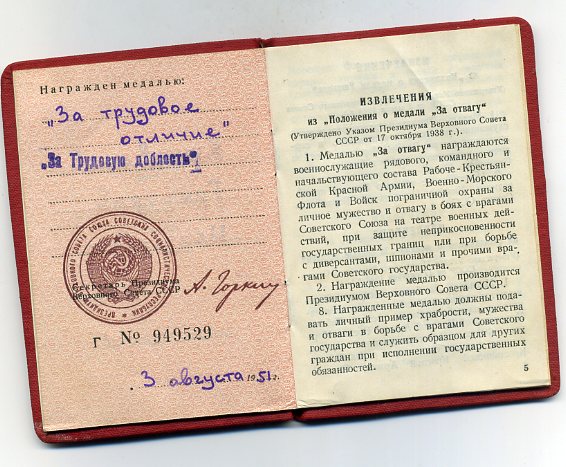 Награжден медалью:
„За трудовое
отличие"
„За Трудовую доблесть"
Секретарь Президиума
Верховного Совета СССР
А. Горкин
Г № 949529
3 августа 1951 г.
ИЗВЛЕЧЕНИЯ
из „Положения о медали „За отвагу"
(Утверждено Указом Президиума Верховного Совета
СССР от 17 октября 1938 г.).
1. Медалью „За отвагу" награждаются
военнослужащие рядового, командного и
начальствующего состава Рабоче-Крестьян-
ской Красной Армии, Военно-Морского
Флота и Войск пограничной охраны за
личное мужество и отвагу в боях с врагами
Советского Союза на театре военных дей-
ствий, при защите неприкосновенности
государственных границ или при борьбе
с диверсантами, шпионами и прочими вра-
гами Советского государства.
2. Награждение медалью производится
Президиумом Верховного Совета СССР.
8. Награжденные медалью должны пода-
вать личный пример храбрости, мужества
и отваги в борьбе с врагами Советского
государства и служить образцом для других
граждан при исполнении государственных
обязанностей.
5